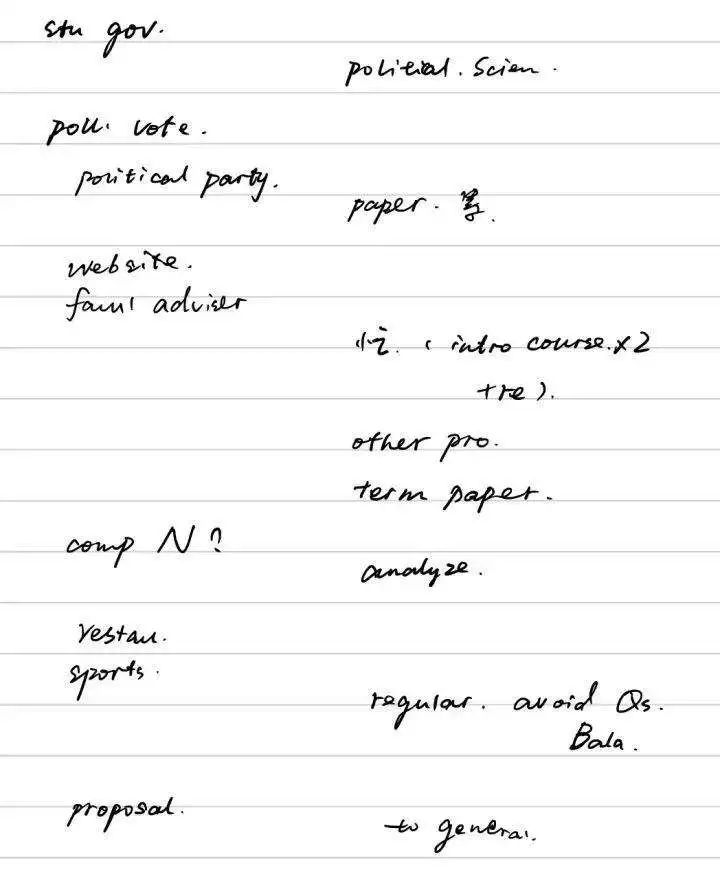 stu gov.
political. Scien.
poll. vote.
political party.
paper.
website.
adviser
忙. (intro course.x2
+re).
other pro.
term paper.
comp N?
analyze.
restau.
sports.
regular. avoid Qs.
Bala.
proposal.
to general.